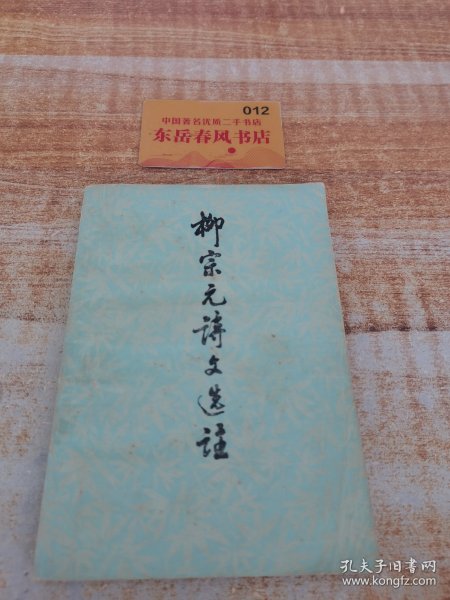 012
中国著名优质二手书店
东岳春风书店
柳宗元詩文选註
孔夫子旧书网
www.kongfz.com